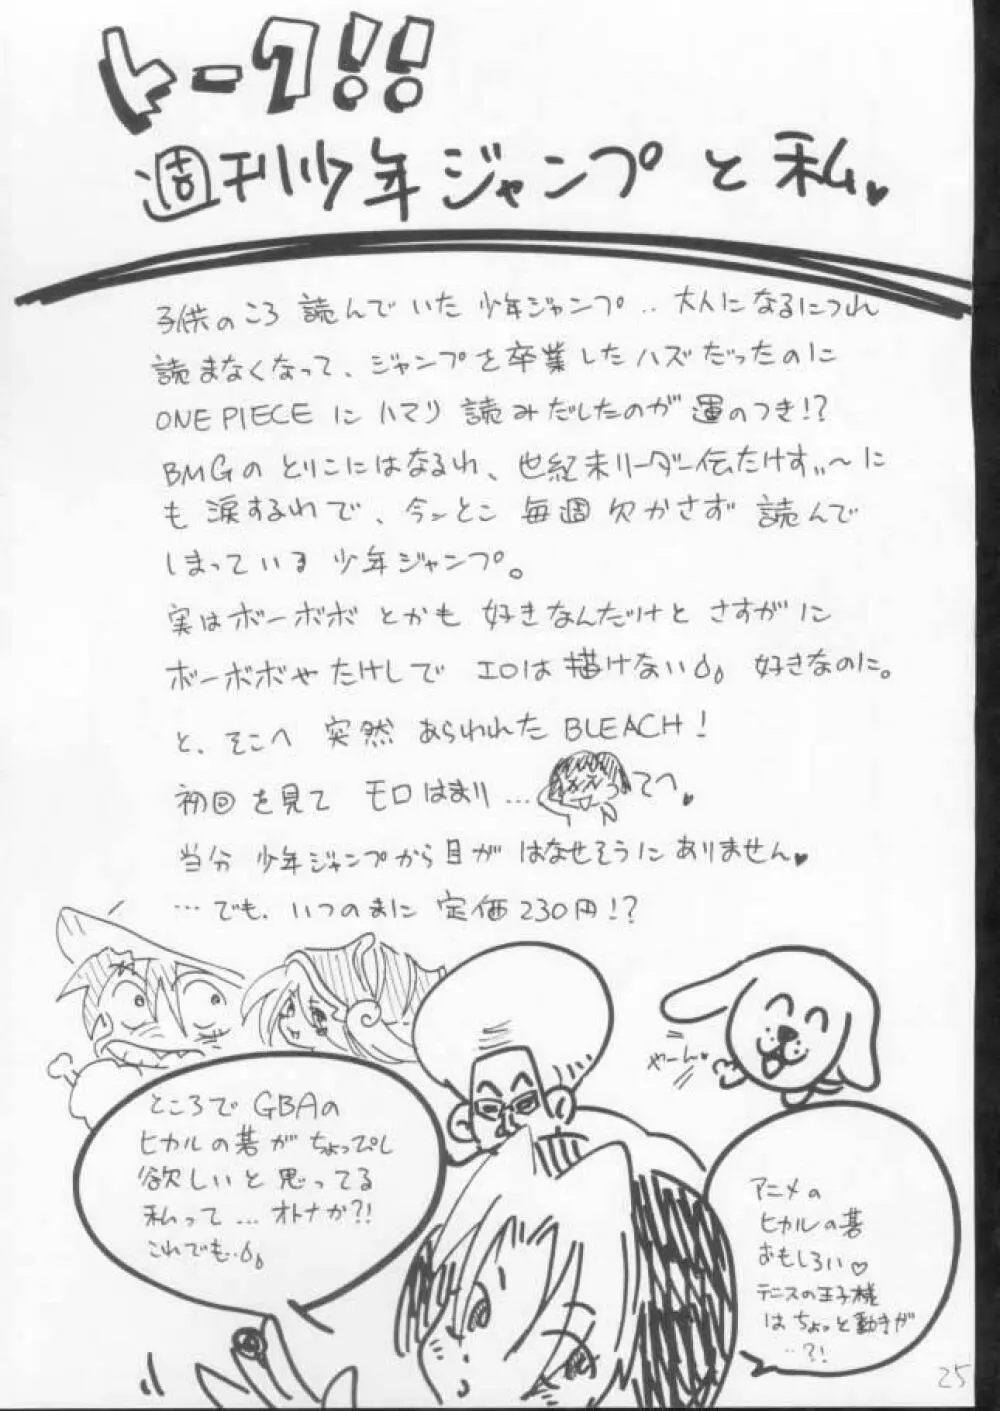 トーク!!
週刊少年ジャンプと私♥
子供のころ 読んでいた 少年ジャンプ‥大人になるにつれ
読まなくなって、ジャンプを卒業したハズだったのに
ONE PIECE にハマり 読みだしたのが 運のつき!?
BMGの とりこにはなるわ、世紀末リーダー伝たけすぃ〜に
も 涙するわで、今ンとこ 毎週 欠かさず 読んで
しまっている 少年ジャンプ。
実はボーボボ とかも 好きなんだけと さすがに
ボーボボや たけしで エロは描けない 好きなのに。
と、そこへ 突然 あらわれた BLEACH!
初回を見て モロはまり… てへ♥
当分 少年ジャンプから 目が はなせそうに ありません♥
…でも、いつのまに 定価230円!?
やーん♥
ところで GBAの
ヒカルの碁が ちょっぴし
欲しいと 思ってる
私って… オトナか?!
これでも‥
アニメの
ヒカルの碁
おもしろい♡
テニスの王子様
は ちょっと 動きが
‥?!
25